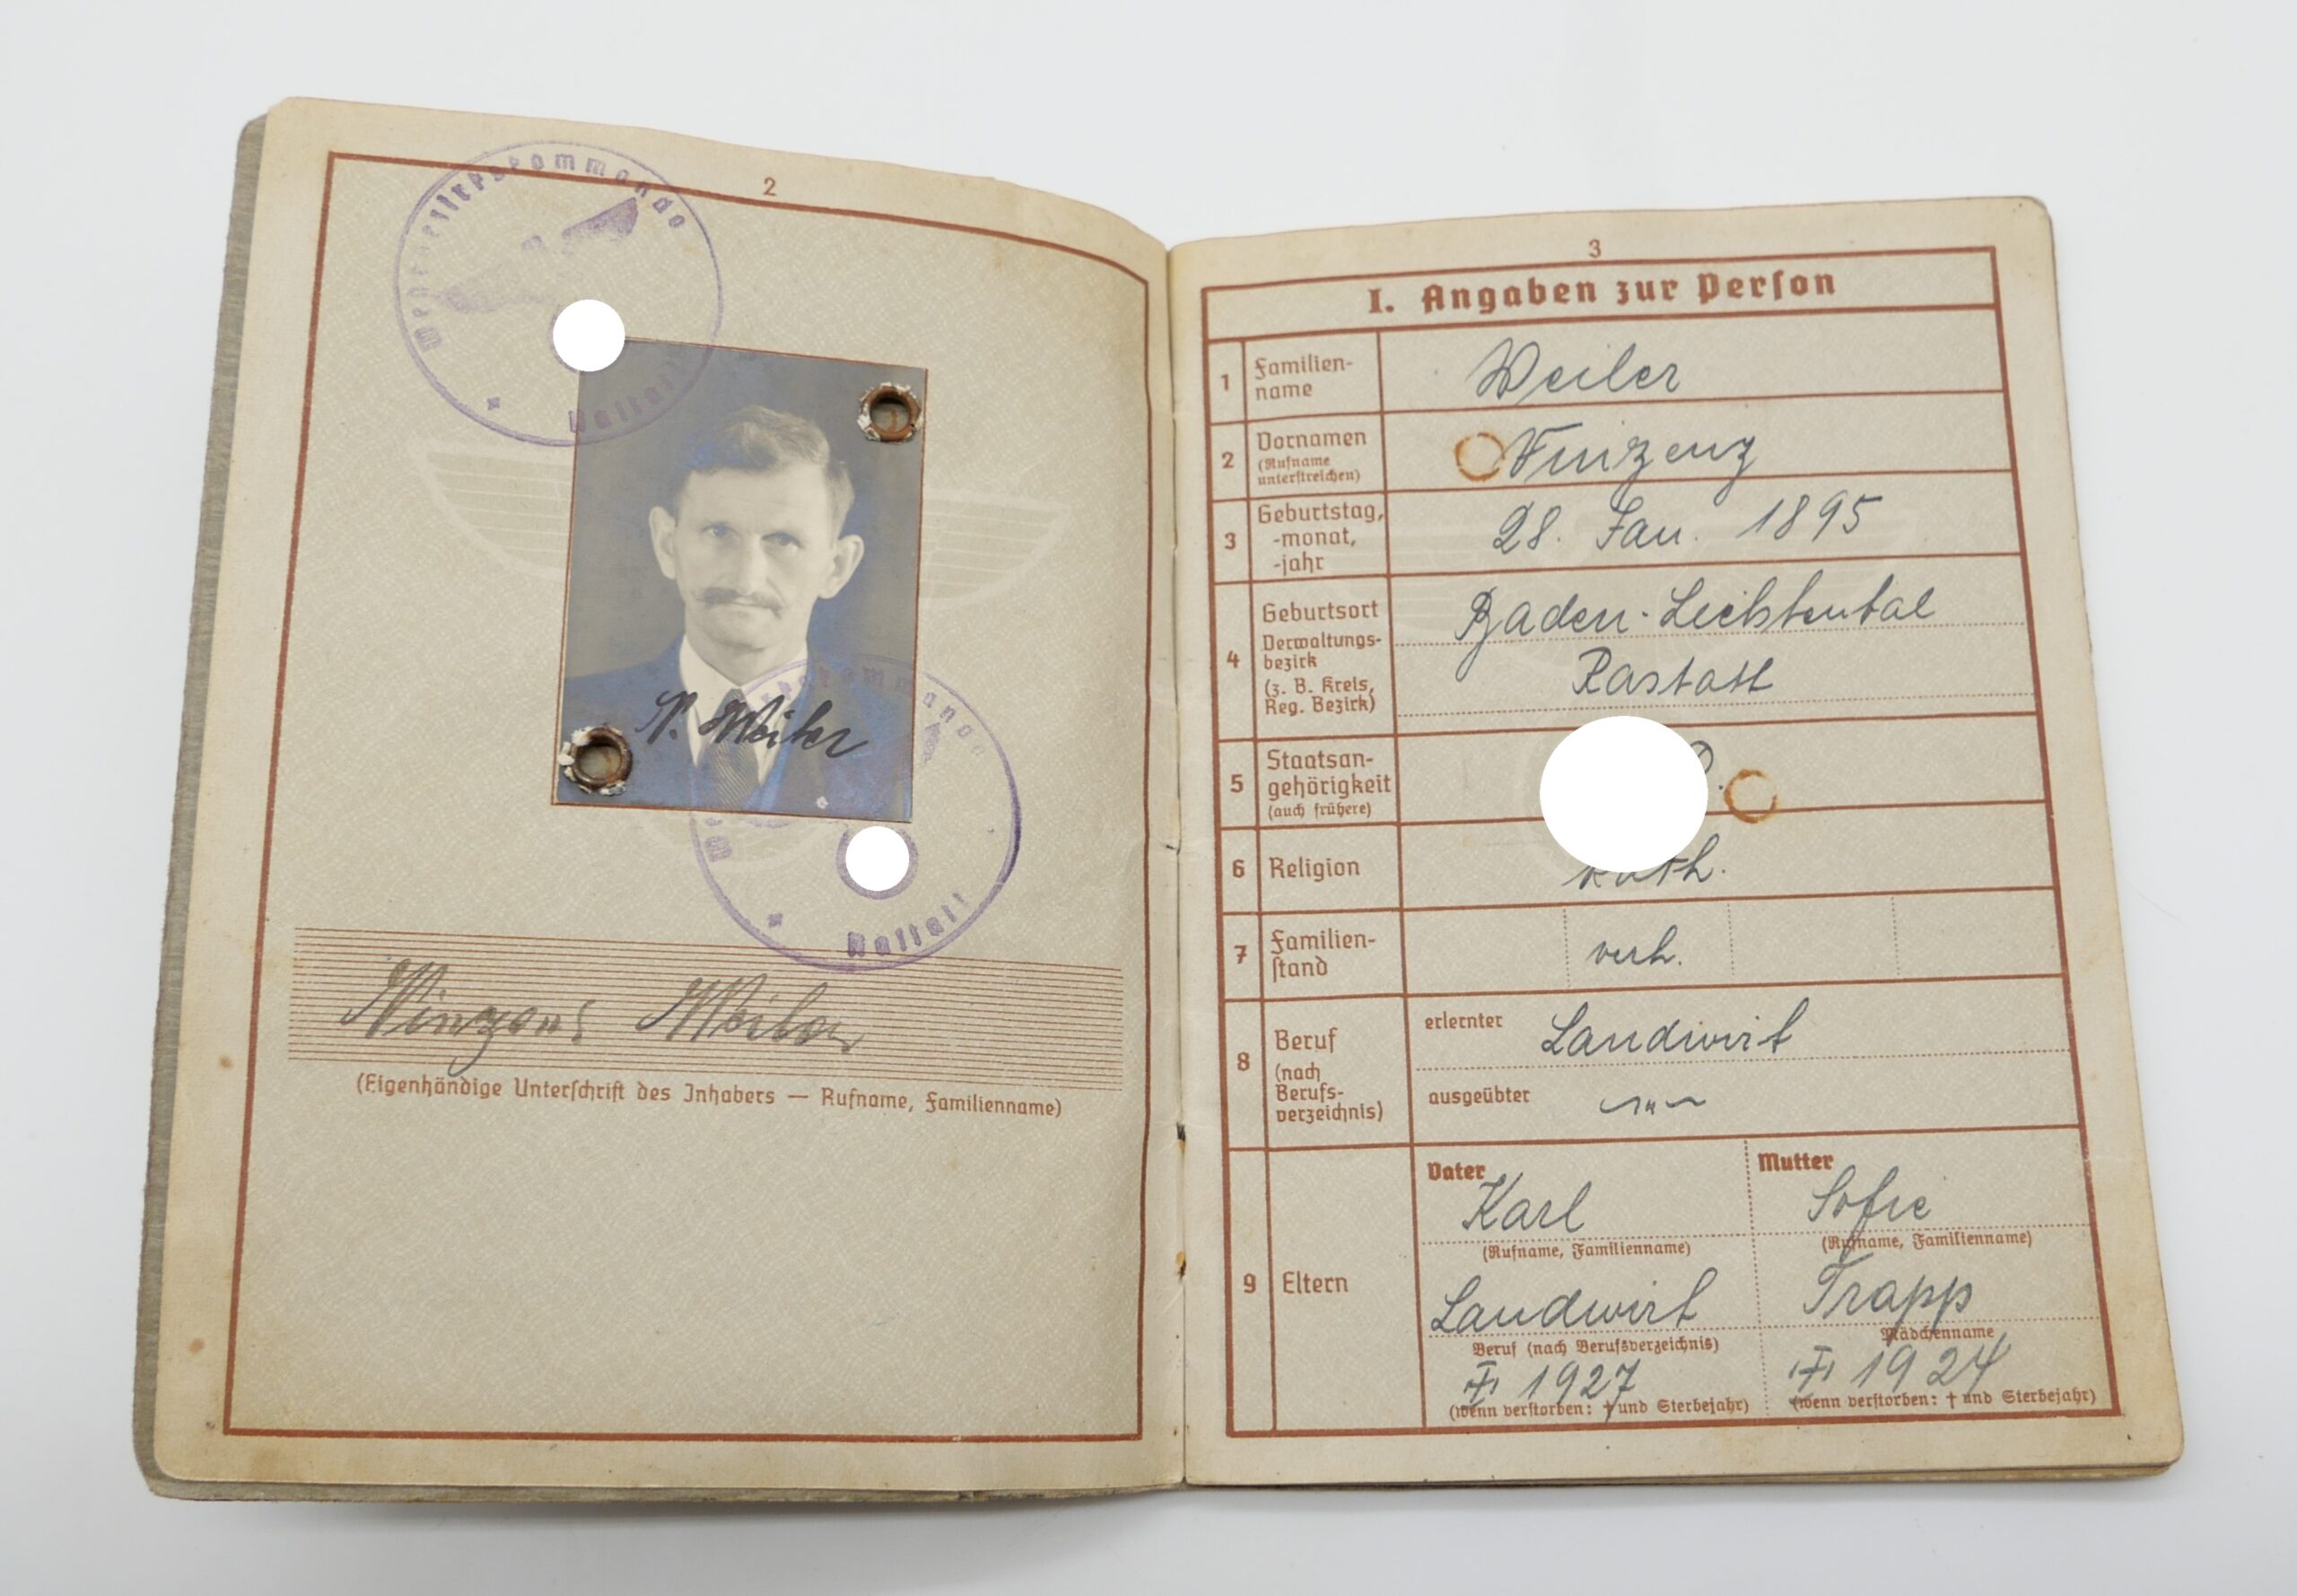 2
Wehrbezirkskommando
Rastatt
V. Weiler
Rastatt
Vinzenz Weiler
(Eigenhändige Unterſchrift des Inhabers — Rufname, Familienname)
3
I. Angaben zur Perſon
1 Familien-
name
Weiler
2 Vornamen
(Rufname
unterſtreichen)
Vinzenz
3 Geburtstag,
-monat,
-jahr
28. Jan. 1895
4 Geburtsort
Verwaltungs-
bezirk
(z. B. Kreis,
Reg. Bezirk)
Baden-Lichtental
Rastatt
5 Staatsan-
gehörigkeit
(auch frühere)
6 Religion
kath.
7 Familien-
ſtand
verh.
8 Beruf
(nach
Berufs-
verzeichnis)
erlernter Landwirt
ausgeübter ~"~
9 Eltern
Vater
Karl
(Rufname, Familienname)
Landwirt
Beruf (nach Berufsverzeichnis)
† 1927
(wenn verſtorben: † und Sterbejahr)
Mutter
Sofie
(Rufname, Familienname)
Trapp
Mädchenname
† 1924
(wenn verſtorben: † und Sterbejahr)